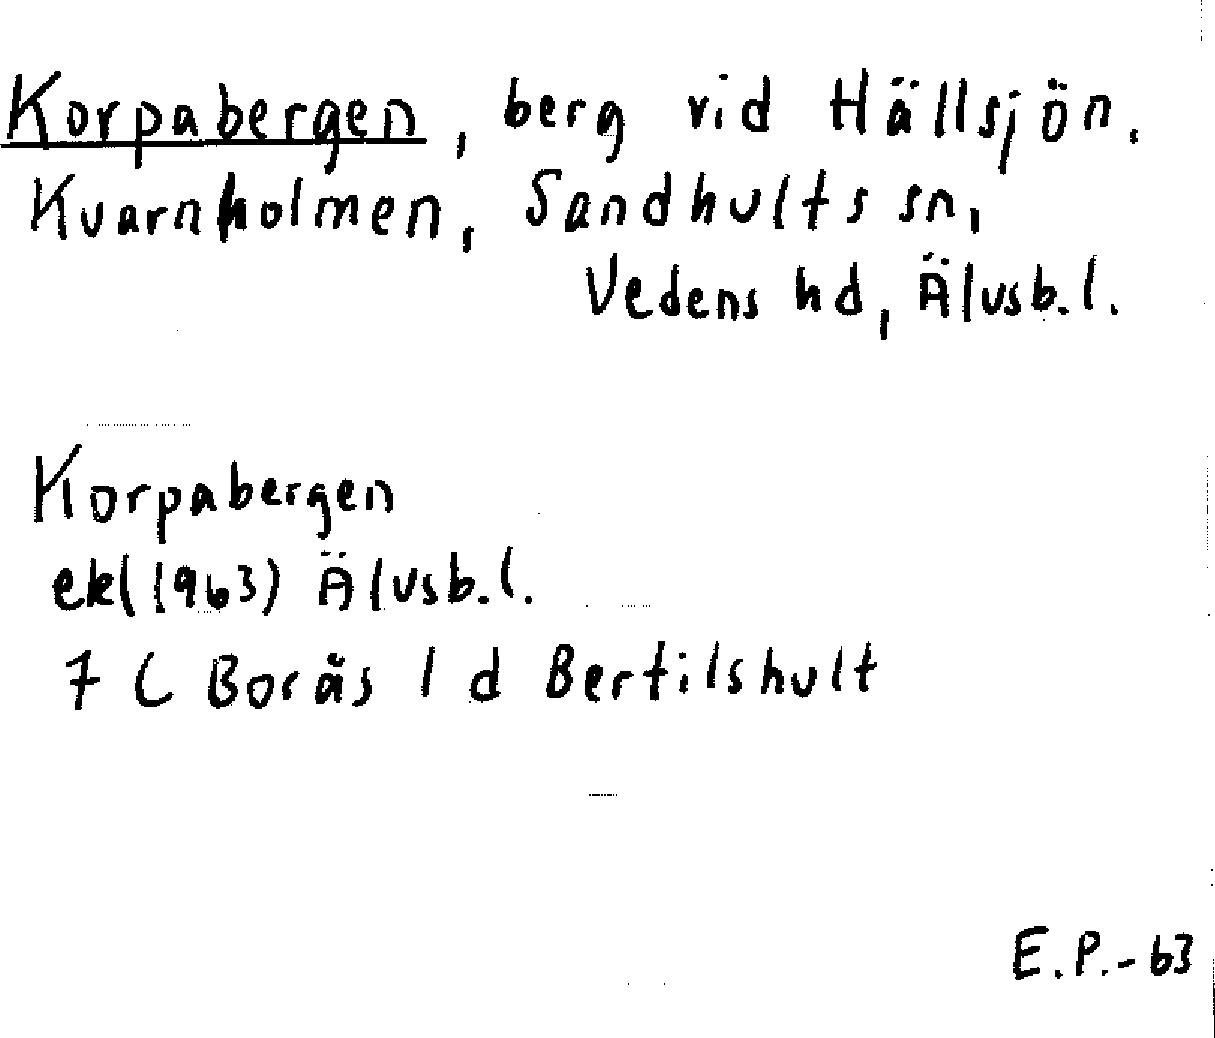 Korpabergen, berg vid Hällsjön.
Kvarnholmen, Sandhults sn,
Vedens hd, Älvsb. l.
Korpabergen
ekl (1963) Älvsb. l.
7 C Borås 1 d Bertilshult
E. P. - 63